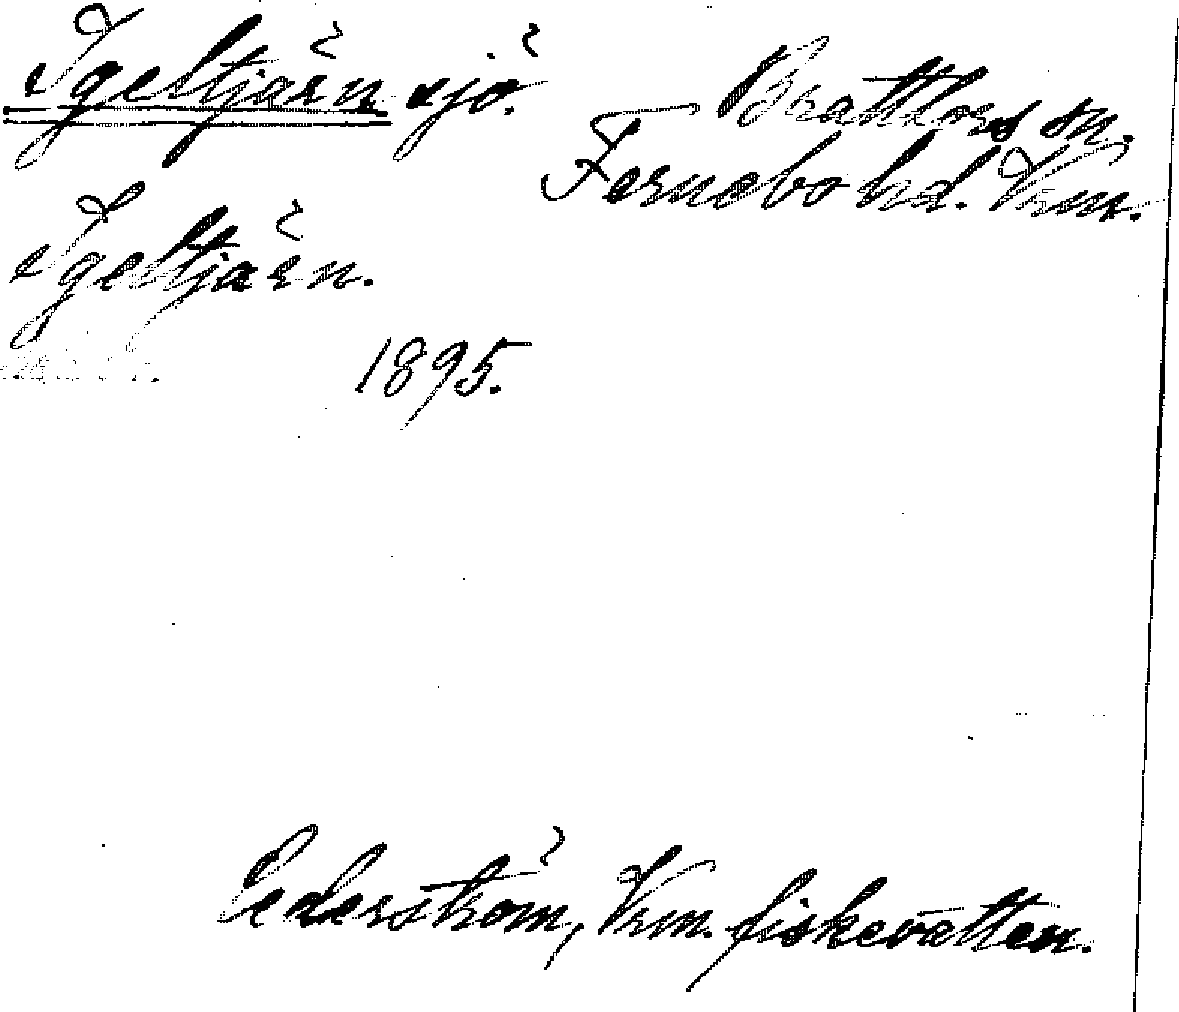 Igeltjärn sjö.
Brattfors sn.
Fernebo hd. Vrm.
Igeltjärn.
1895.
Cederström, Vrm. fiskevatten.